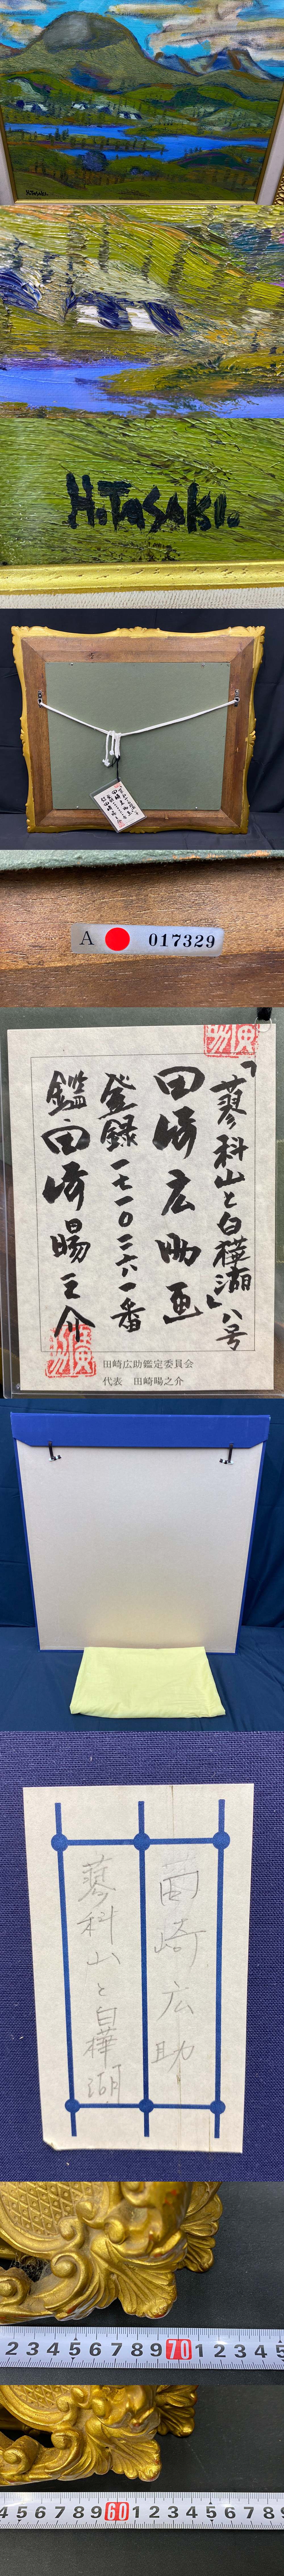 H.Tasaki.
H.Tasaki.
A 017329
「蓼科山と白樺湖」八号
田崎広助画
登録一七一〇三六一番
鑑田崎暘之介
田崎広助鑑定委員会
代表 田崎暘之介
田崎広助
蓼科山と白樺湖
2 3 4 5 6 7 8 9 70 1 2 3 4 5
4 5 6 7 8 9 60 1 2 3 4 5 6 7 8 9